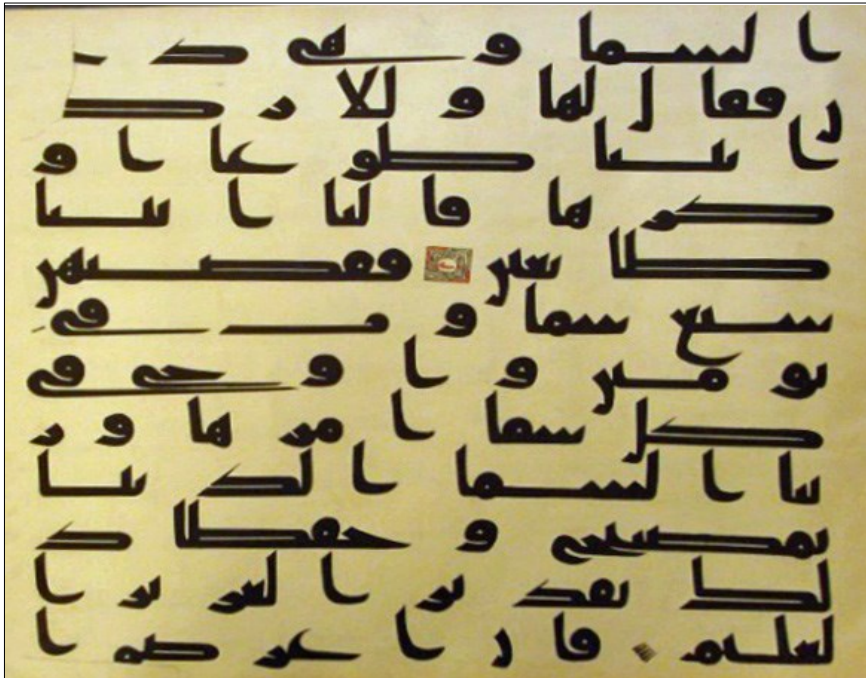 السما وهى دخا
ن فقال لها وللارض
ائتيا طوعا او
كرها قالتا اتينا
طائعين فقضيهن
سبع سموت فى
يومين واوحى فى
كل سما امرها وز
ينا السما الدنيا
بمصبيح وحفظا ذ
لك تقدير العزيز ا
لعليم فان اعرضوا